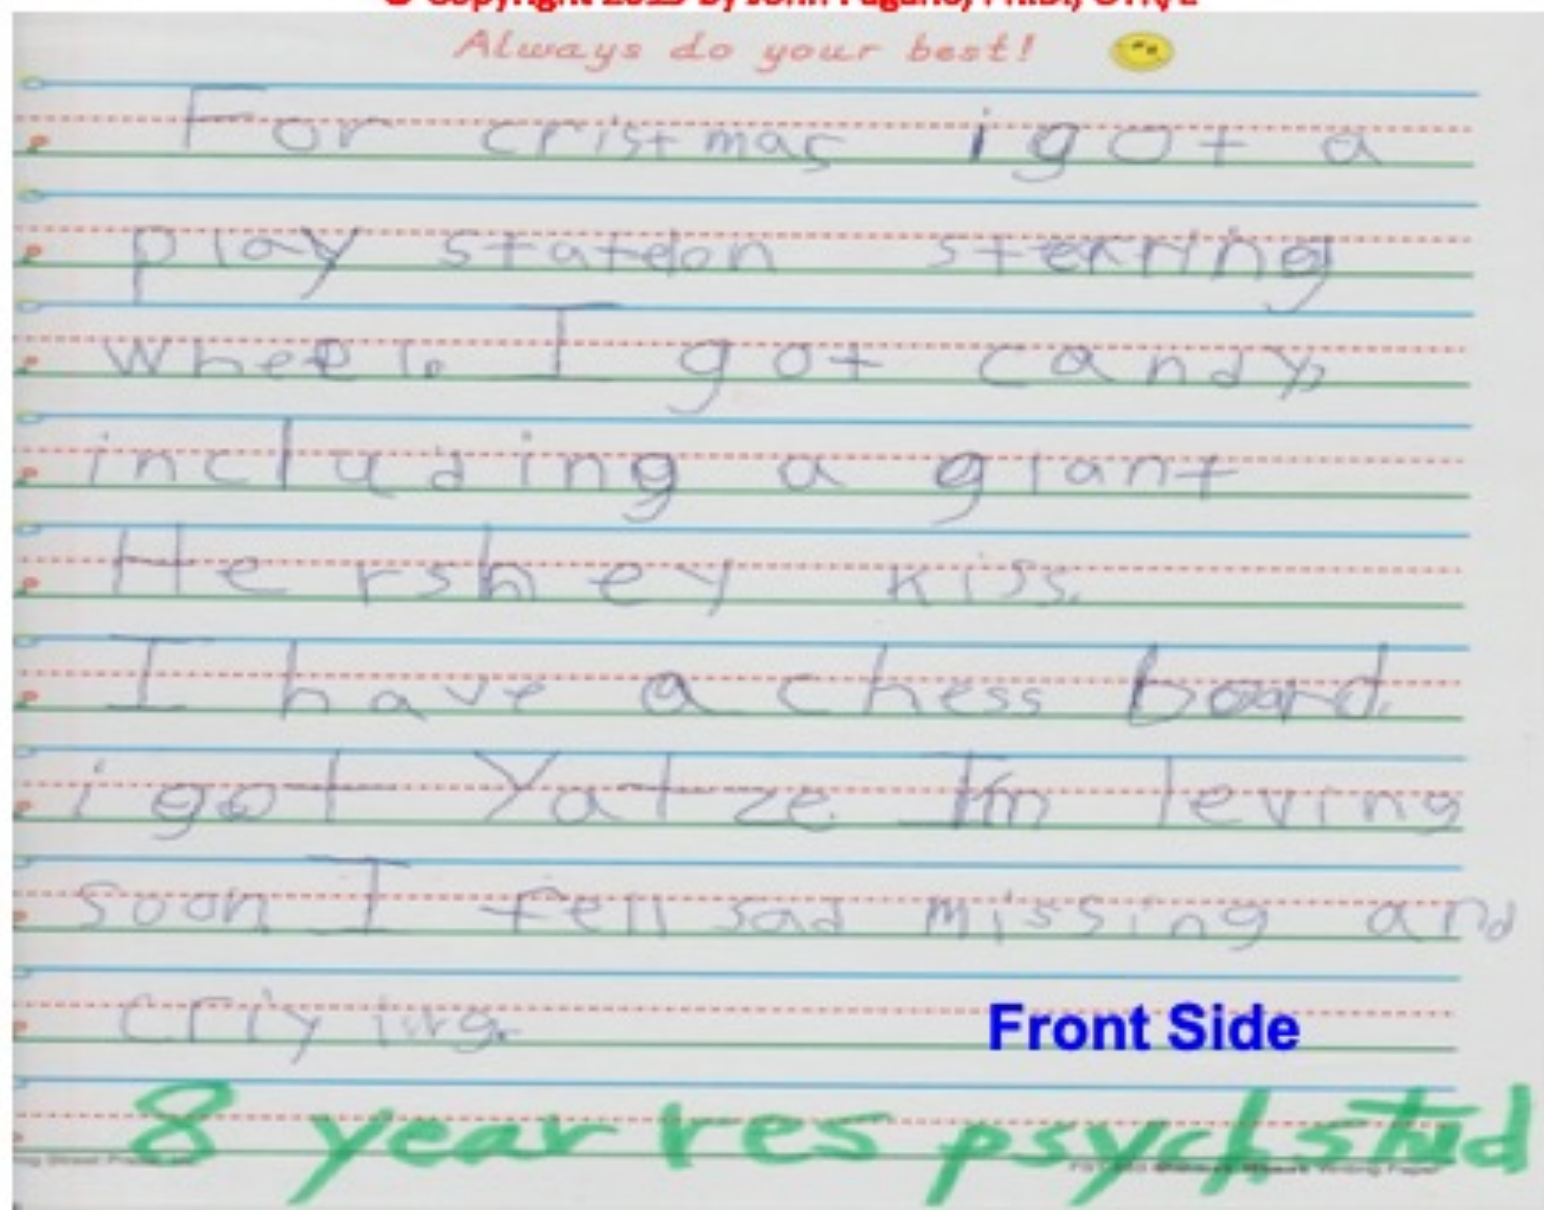 © Copyright 2015 by John Pagano, Ph.D., OTR/L
Always do your best!
For cristmas i got a
play station sterring
wheel. I got candy,
including a giant
Hershey kiss.
I have a chess board.
i got Yatze. I'm leving
soon. I fell sad missing and
criying.
Front Side
8 year res psych stud